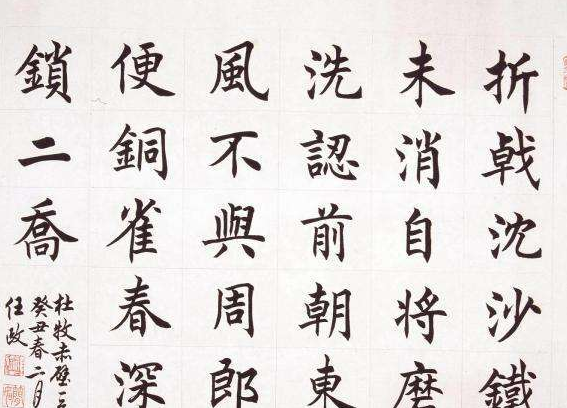 折戟沈沙鐵
未消自將磨
洗認前朝東
風不與周郎
便銅雀春深
鎖二喬
杜牧赤壁
癸丑春二月
任政